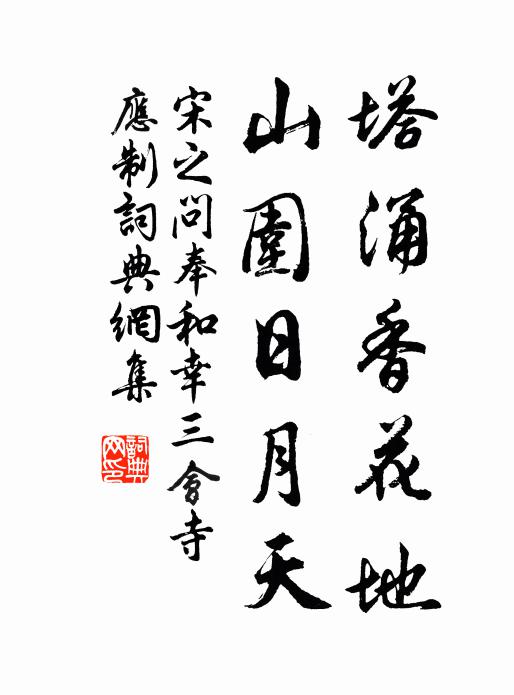 塔涌香花地
山圍日月天
宋之問奉和幸三會寺
應制詞典網集
詞典
网印